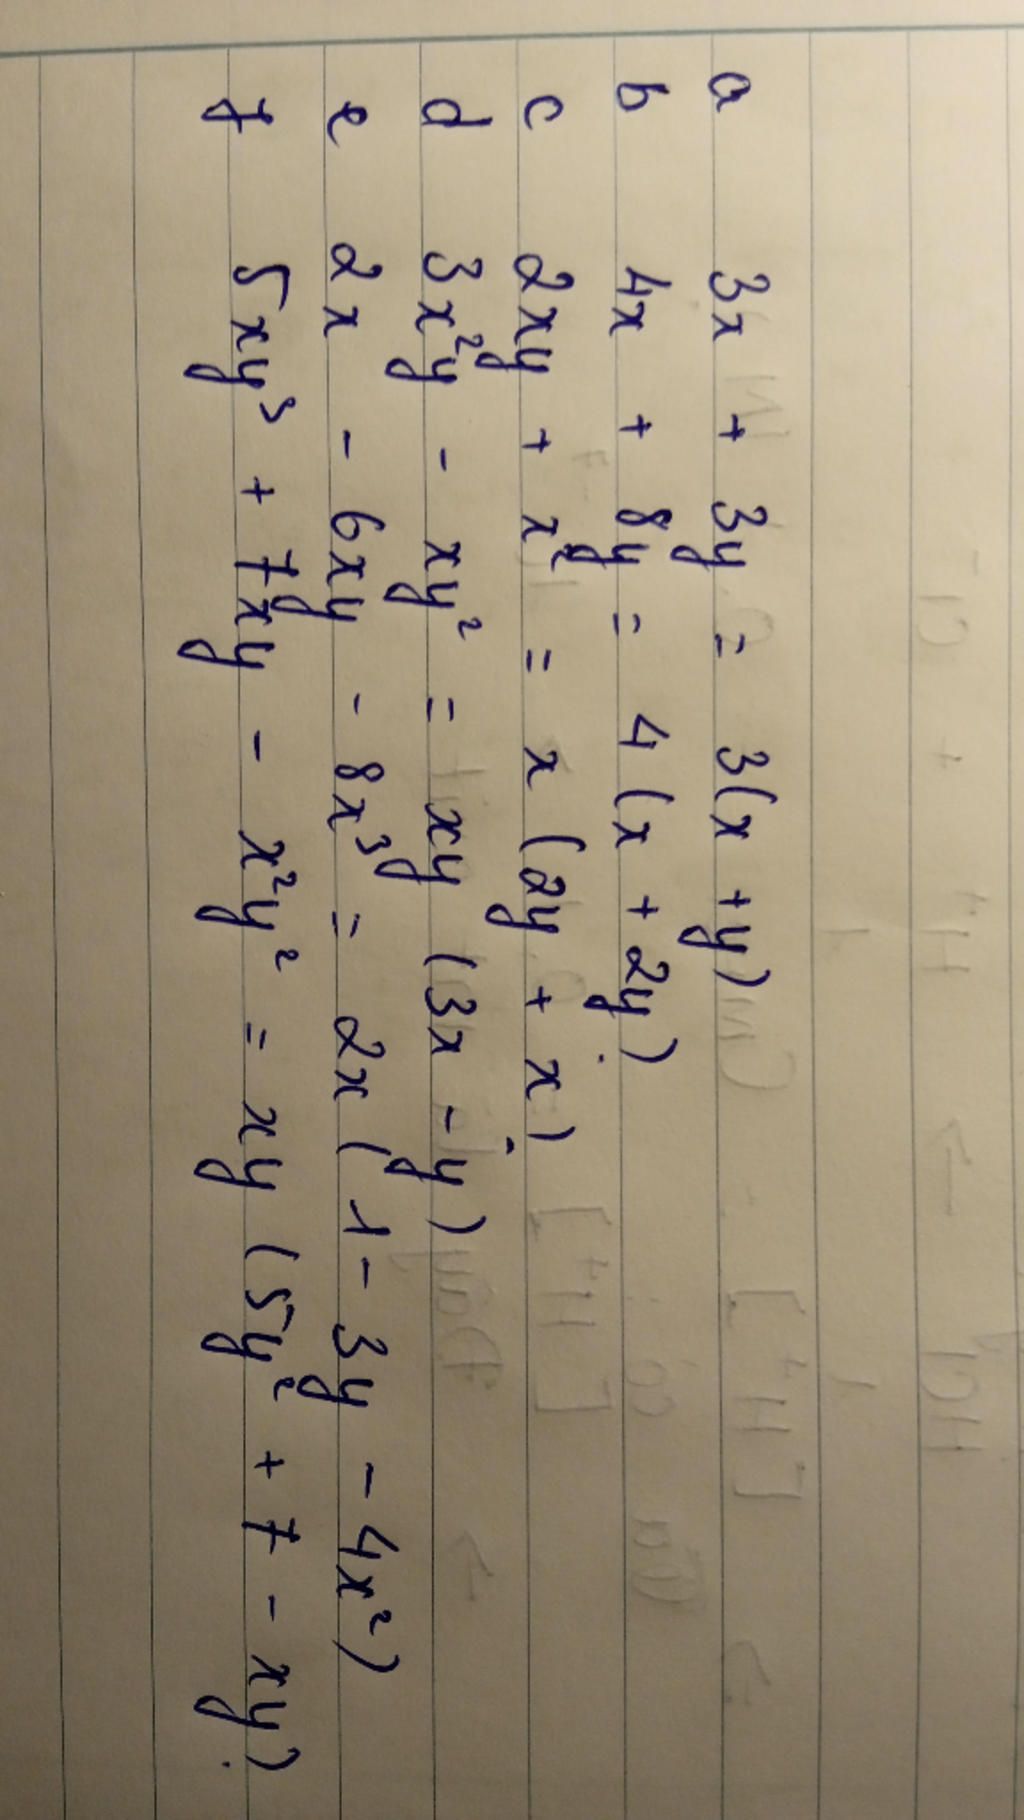 a 3x + 3y = 3(x + y)
b 4x + 8y = 4(x + 2y)
c 2xy + x² = x(2y + x)
d 3x²y - xy² = xy(3x - y)
e 2x - 6xy - 8x³ = 2x(1 - 3y - 4x²)
f 5xy³ + 7xy - x²y² = xy(5y² + 7 - xy)